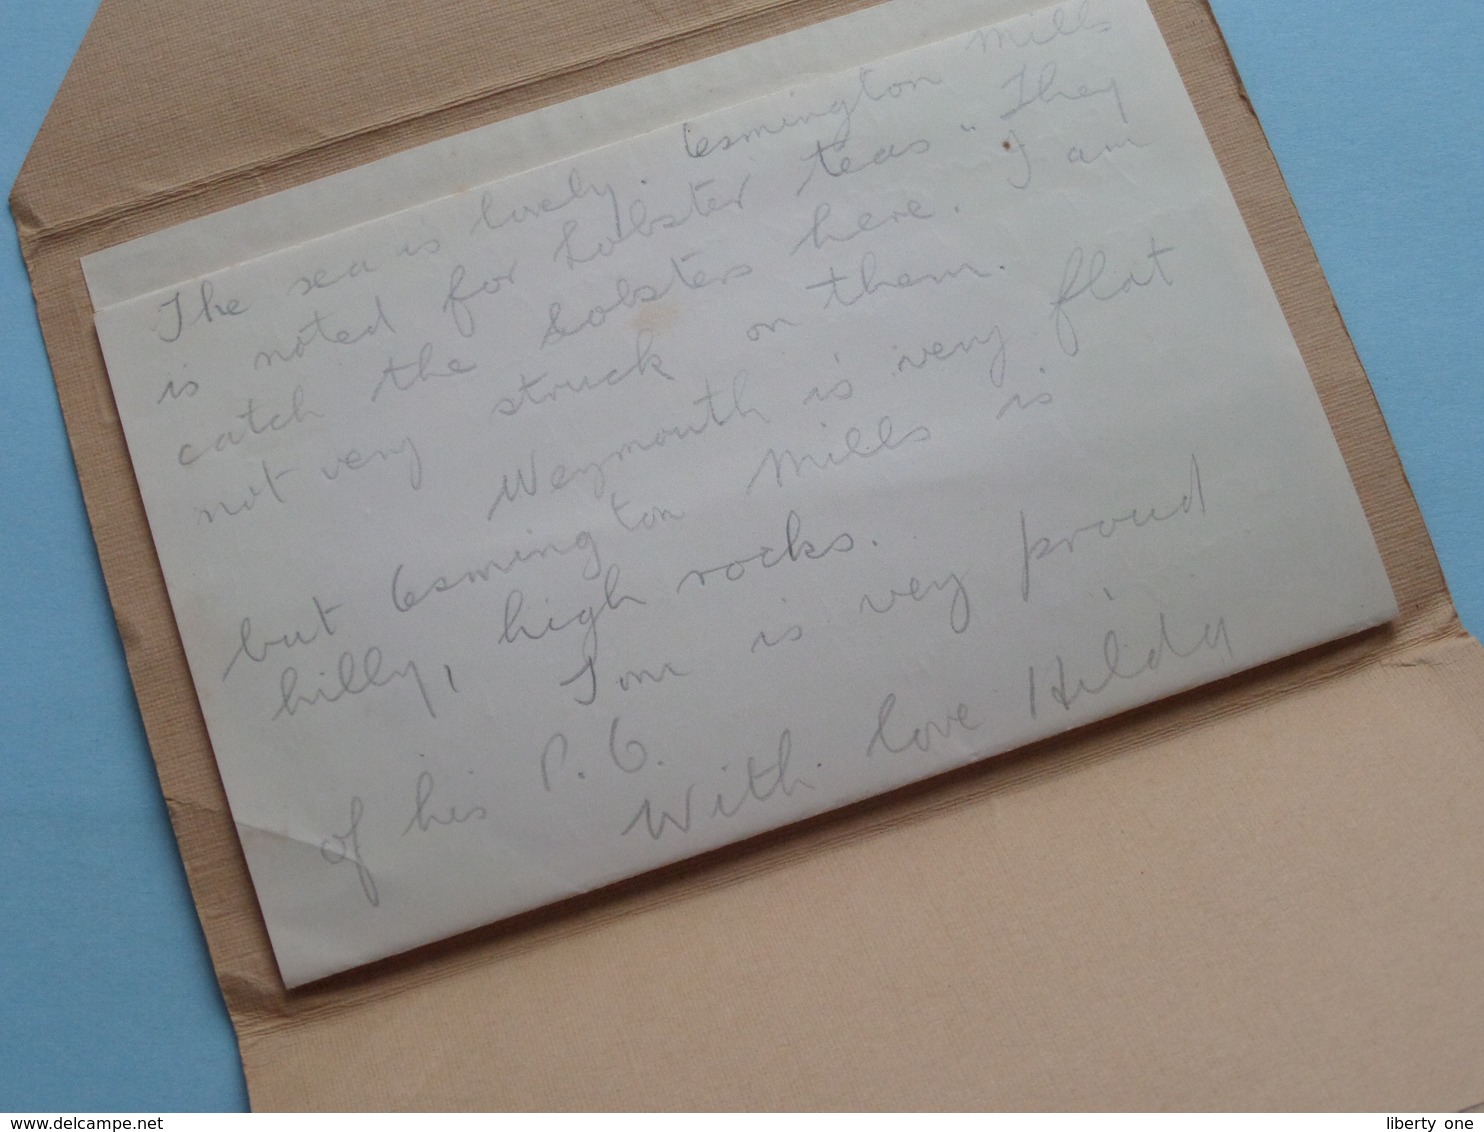 The sea is lovely. Osmington Mills
is noted for Lobster teas" They
catch the Lobsters here. I am
not very struck on them.
Weymouth is very flat
but Osmington Mills is
hilly, high rocks.
Tom is very proud
of his P.C.
With love Hilda
delcampe.net
liberty one